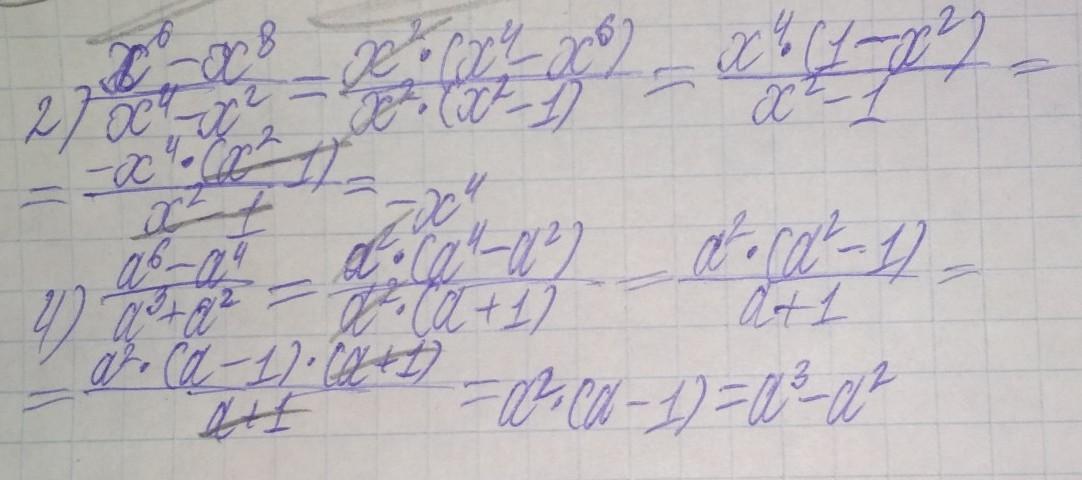 2) (x⁶ − x⁸)/(x⁴ − x²) = (x² · (x⁴ − x⁶))/(x² · (x² − 1)) = (x⁴ · (1 − x²))/(x² − 1) =
= (−x⁴ · (x² − 1))/(x² − 1) = −x⁴
4) (a⁶ − a⁴)/(a³ + a²) = (a² · (a⁴ − a²))/(a² · (a + 1)) = (a² · (a² − 1))/(a + 1) =
= (a² · (a − 1) · (a + 1))/(a + 1) = a² · (a − 1) = a³ − a²